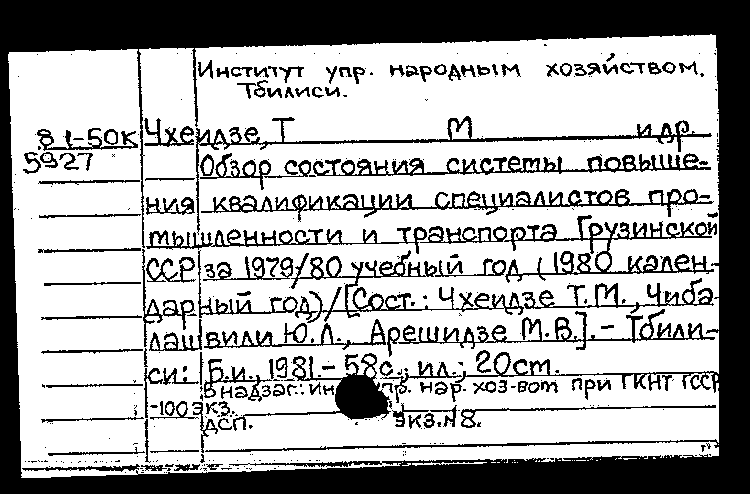 Институт упр. народным хозяйством.
Тбилиси.
81-50К Чхеидзе, Т М и др.
5927 Обзор состояния системы повыше-
ния квалификации специалистов про-
мышленности и транспорта Грузинской
ССР за 1979/80 учебный год (1980 кален-
дарный год) / [Сост.: Чхеидзе Т.М., Чиба-
лашвили Ю.Л., Арешидзе М.В.]. - Тбили-
си: Б.и., 1981. - 58с.; ил.; 20см.
В надзаг.: упр. нар. хоз-вом при ГКНТ ГССР
-100 экз.
ДСП. Экз.№8.